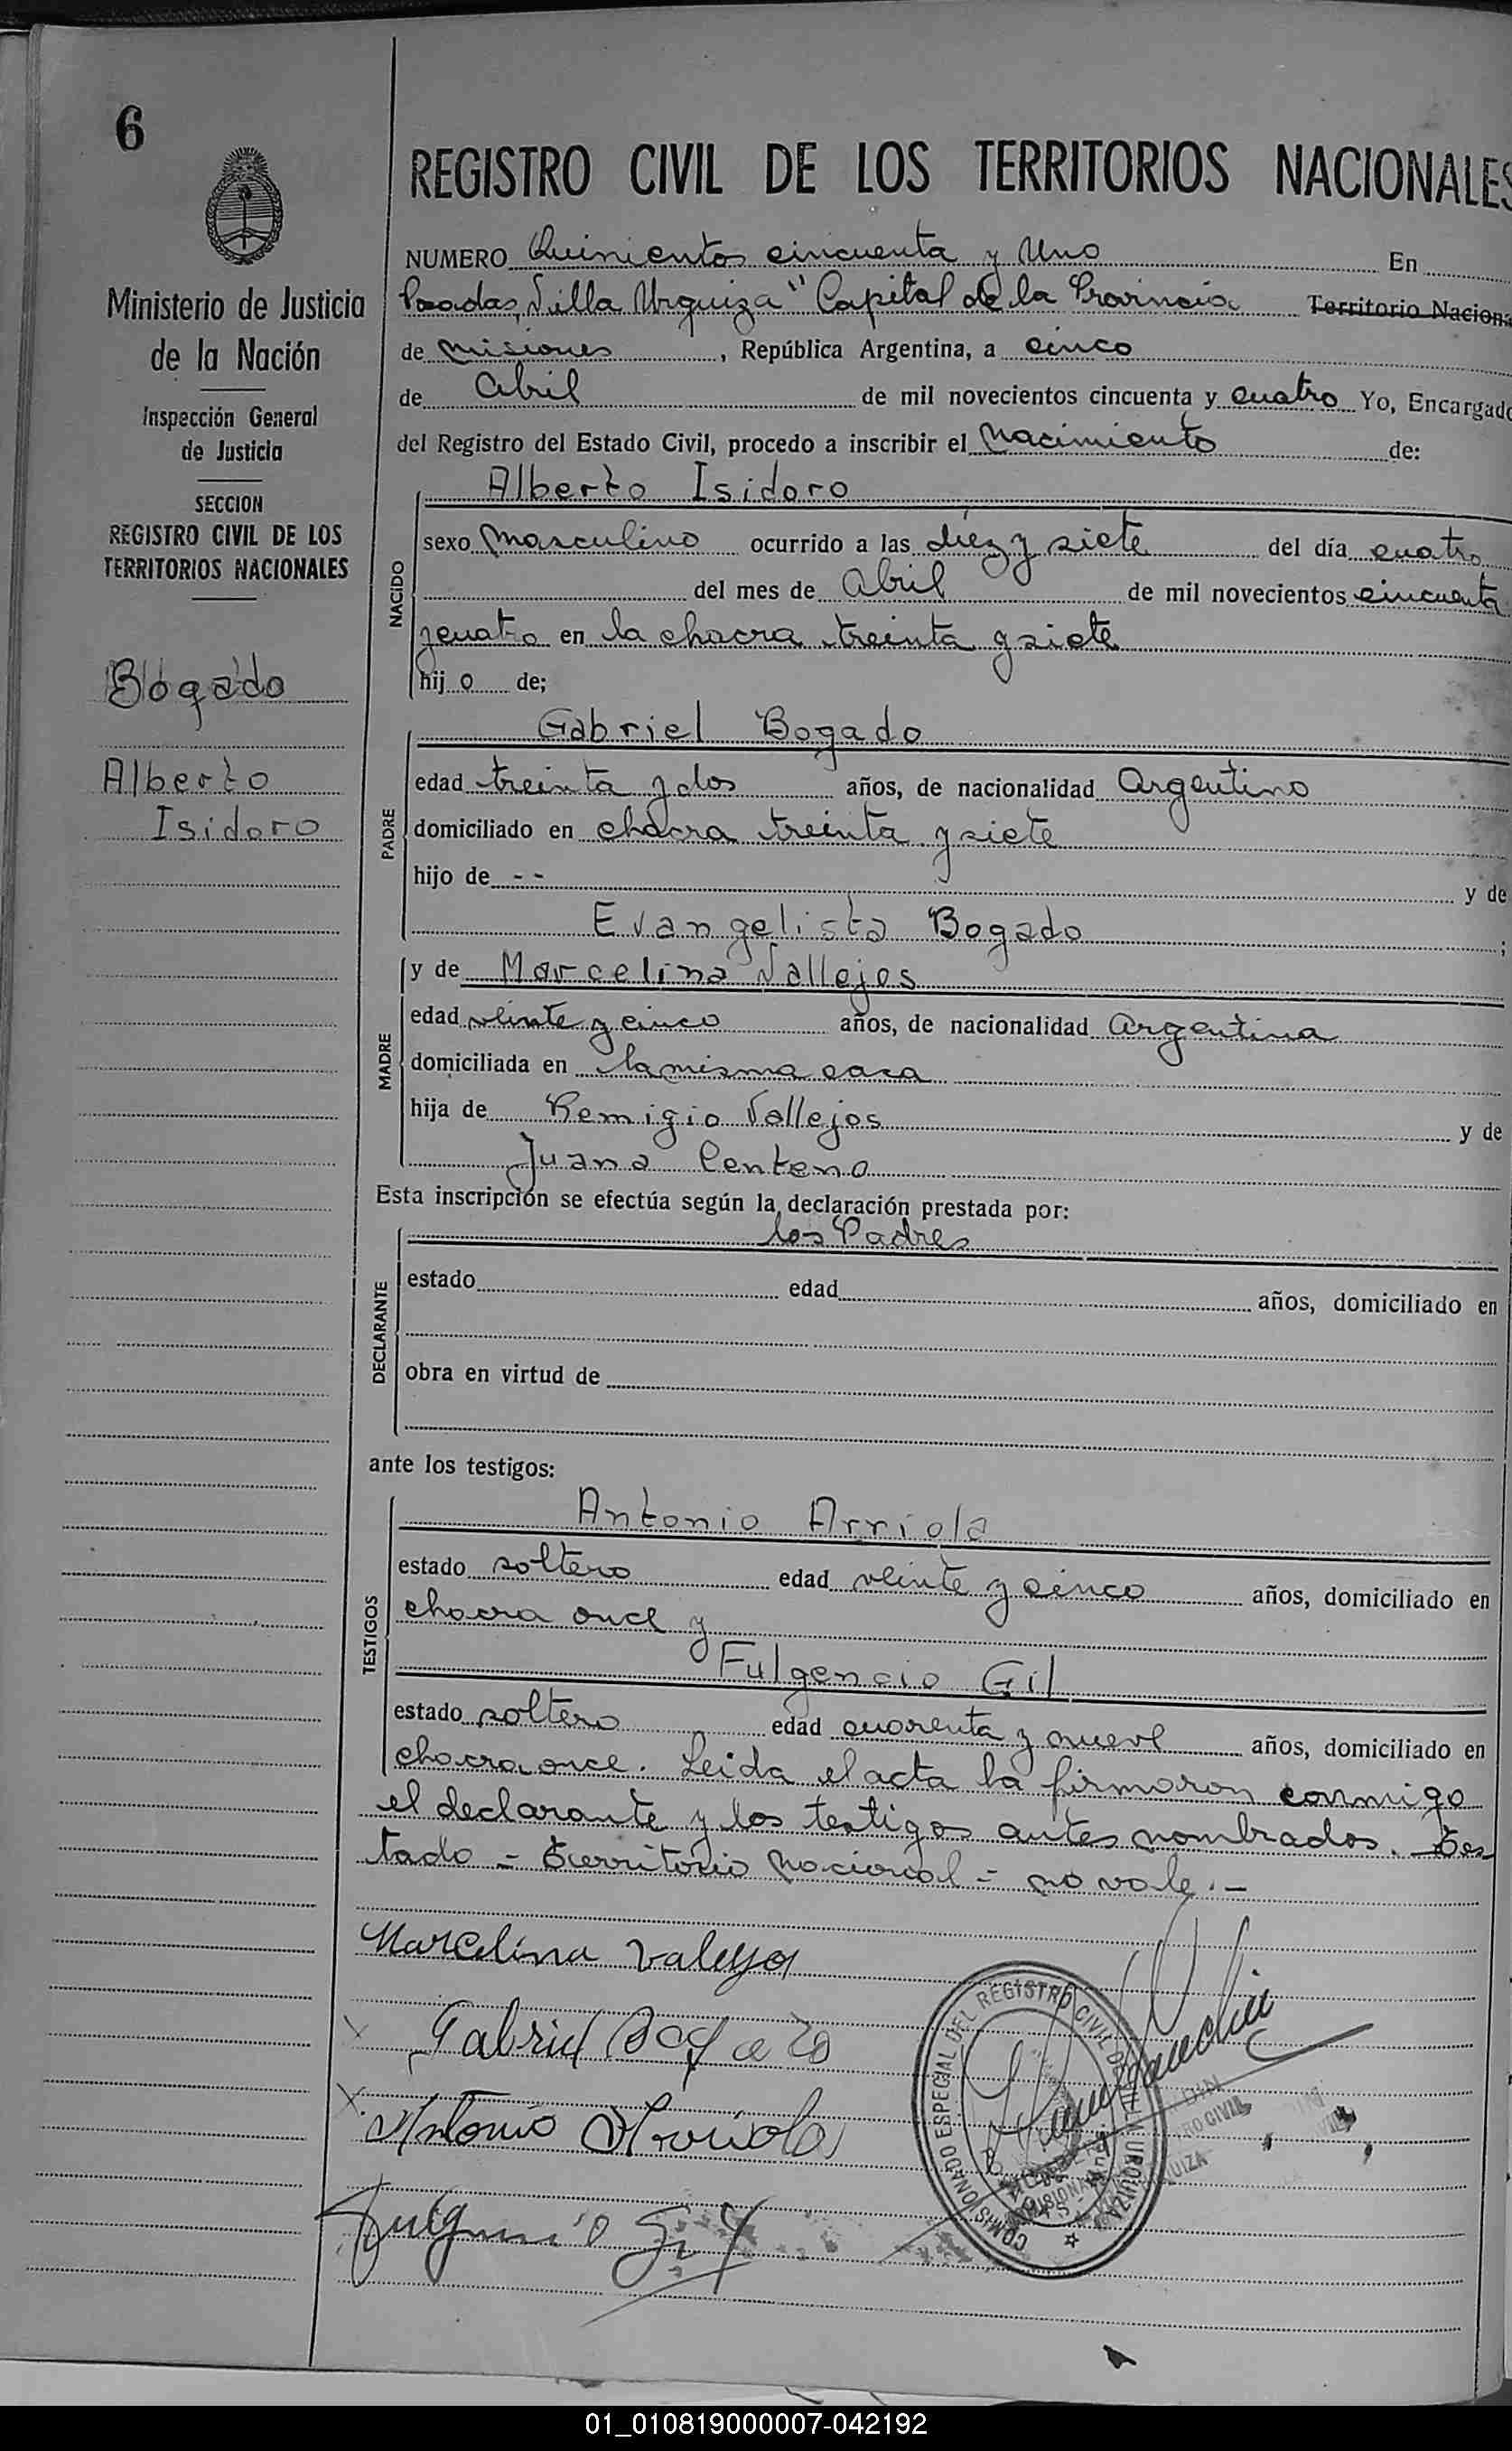 6
Ministerio de Justicia
de la Nación
Inspección General
de Justicia
SECCION
REGISTRO CIVIL DE LOS
TERRITORIOS NACIONALES
Bogado
Alberto
Isidoro
REGISTRO CIVIL DE LOS TERRITORIOS NACIONALES
NUMERO Quinientos cincuenta y Uno En
Posadas, Villa Urquiza" Capital de la Provincia Territorio Naciona
de Misiones, República Argentina, a cinco
de Abril de mil novecientos cincuenta y cuatro Yo, Encargado
del Registro del Estado Civil, procedo a inscribir el Nacimiento de:
Alberto Isidoro
NACIDO
sexo masculino ocurrido a las diez y siete del día cuatro
del mes de Abril de mil novecientos cincuenta
y cuatro en la chacra treinta y siete
hij o de;
Gabriel Bogado
PADRE
edad treinta y dos años, de nacionalidad Argentino
domiciliado en chacra treinta y siete
hijo de -- y de
Evangelista Bogado ;
y de Marcelina Vallejos
MADRE
edad veinte y cinco años, de nacionalidad Argentina
domiciliada en la misma casa
hija de Remigio Vallejos y de
Juana Centeno
Esta inscripción se efectúa según la declaración prestada por:
los Padres
DECLARANTE
estado edad años, domiciliado en
obra en virtud de
ante los testigos:
Antonio Arriola
TESTIGOS
estado soltero edad veinte y cinco años, domiciliado en
chacra once y
Fulgencio Gil
estado soltero edad cuarenta y nueve años, domiciliado en
chacra once. Leida el acta la firmaron conmigo
el declarante y los testigos antes nombrados. Tes
tado = Territorio Nacional = no vale.-
Marcelina Valleyos
x Gabriel Bogado
x Antonio Arriola
Fulgencio Gil
COMISIONADO ESPECIAL DEL REGISTRO CIVIL DE URQUIZA
01_010819000007-042192